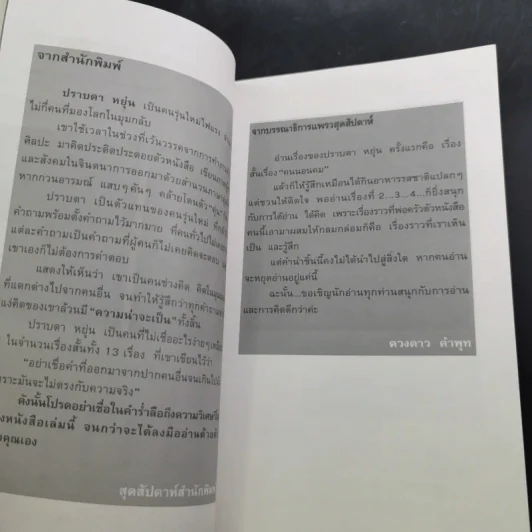 จากสำนักพิมพ์
ปราบดา หยุ่น เป็นคนรุ่นใหม่ไฟแรง
ไม่กี่คนที่มองโลกในมุมกลับ
เขาใช้เวลาในช่วงที่เว้นวรรคจากการทำงาน
ศิลปะ มาคิดประดิดประดอยตัวหนังสือ
และสังคมในจินตนาการออกมาด้วยสำนวนภาษา
หากกวนอารมณ์ แสบๆคันๆ คล้ายโดนตัว
ปราบดา เป็นตัวแทนของคนรุ่นใหม่
คำถามพร้อมตั้งคำถามไว้มากมาย ที่คนทั่วไป
แต่ละคำถามเป็นคำถามที่ผู้คนก็ไม่เคยคิดจะตอบ
เขาเองก็ไม่ต้องการคำตอบ
แสดงให้เห็นว่า เขาเป็นคนช่างคิด คิดในมุม
ที่แตกต่างไปจากคนอื่น จนทำให้รู้สึกว่าทุกคำถาม
แง่คิดของเขาล้วนมี "ความน่าจะเป็น" ทั้งสิ้น
ปราบดา หยุ่น เป็นคนที่ไม่เชื่ออะไรง่ายๆ
ในจำนวนเรื่องสั้นทั้ง 13 เรื่อง ที่เขาเขียนไว้ว่า
"อย่าเชื่อคำที่ออกมาจากปากคนอื่นจนเกินไป
เพราะมันจะไม่ตรงกับความจริง"
ดังนั้นโปรดอย่าเชื่อในคำร่ำลือถึงความวิเศษ
หนังสือเล่มนี้ จนกว่าจะได้ลงมืออ่านด้วย
คุณเอง
สุดสัปดาห์สำนักพิมพ์
จากบรรณาธิการแพรวสุดสัปดาห์
อ่านเรื่องของปราบดา หยุ่น ครั้งแรกคือ เรื่อง
สั้นเรื่อง "คนนอนคม"
แล้วก็ให้รู้สึกเหมือนได้กินอาหารรสชาติแปลกๆ
แต่ชวนให้ติดใจ พออ่านเรื่องที่ 2...3...4...ก็ยิ่งสนุก
กับการได้อ่าน ได้คิด เพราะเรื่องราวที่พ่อครัวตัวหนังสือ
คนนี้เอามาผสมให้กลมกล่อมก็คือ เรื่องราวที่เราเห็น
เป็น และรู้สึก
แต่คำน้ำชิ้นนี้คงไม่ได้นำไปสู่สิ่งใด หากคนอ่าน
จะหยุดอ่านอยู่แค่นี้
ฉะนั้น...ขอเชิญนักอ่านทุกท่านสนุกกับการอ่าน
และการคิดดีกว่าค่ะ
ดวงดาว คำพุท